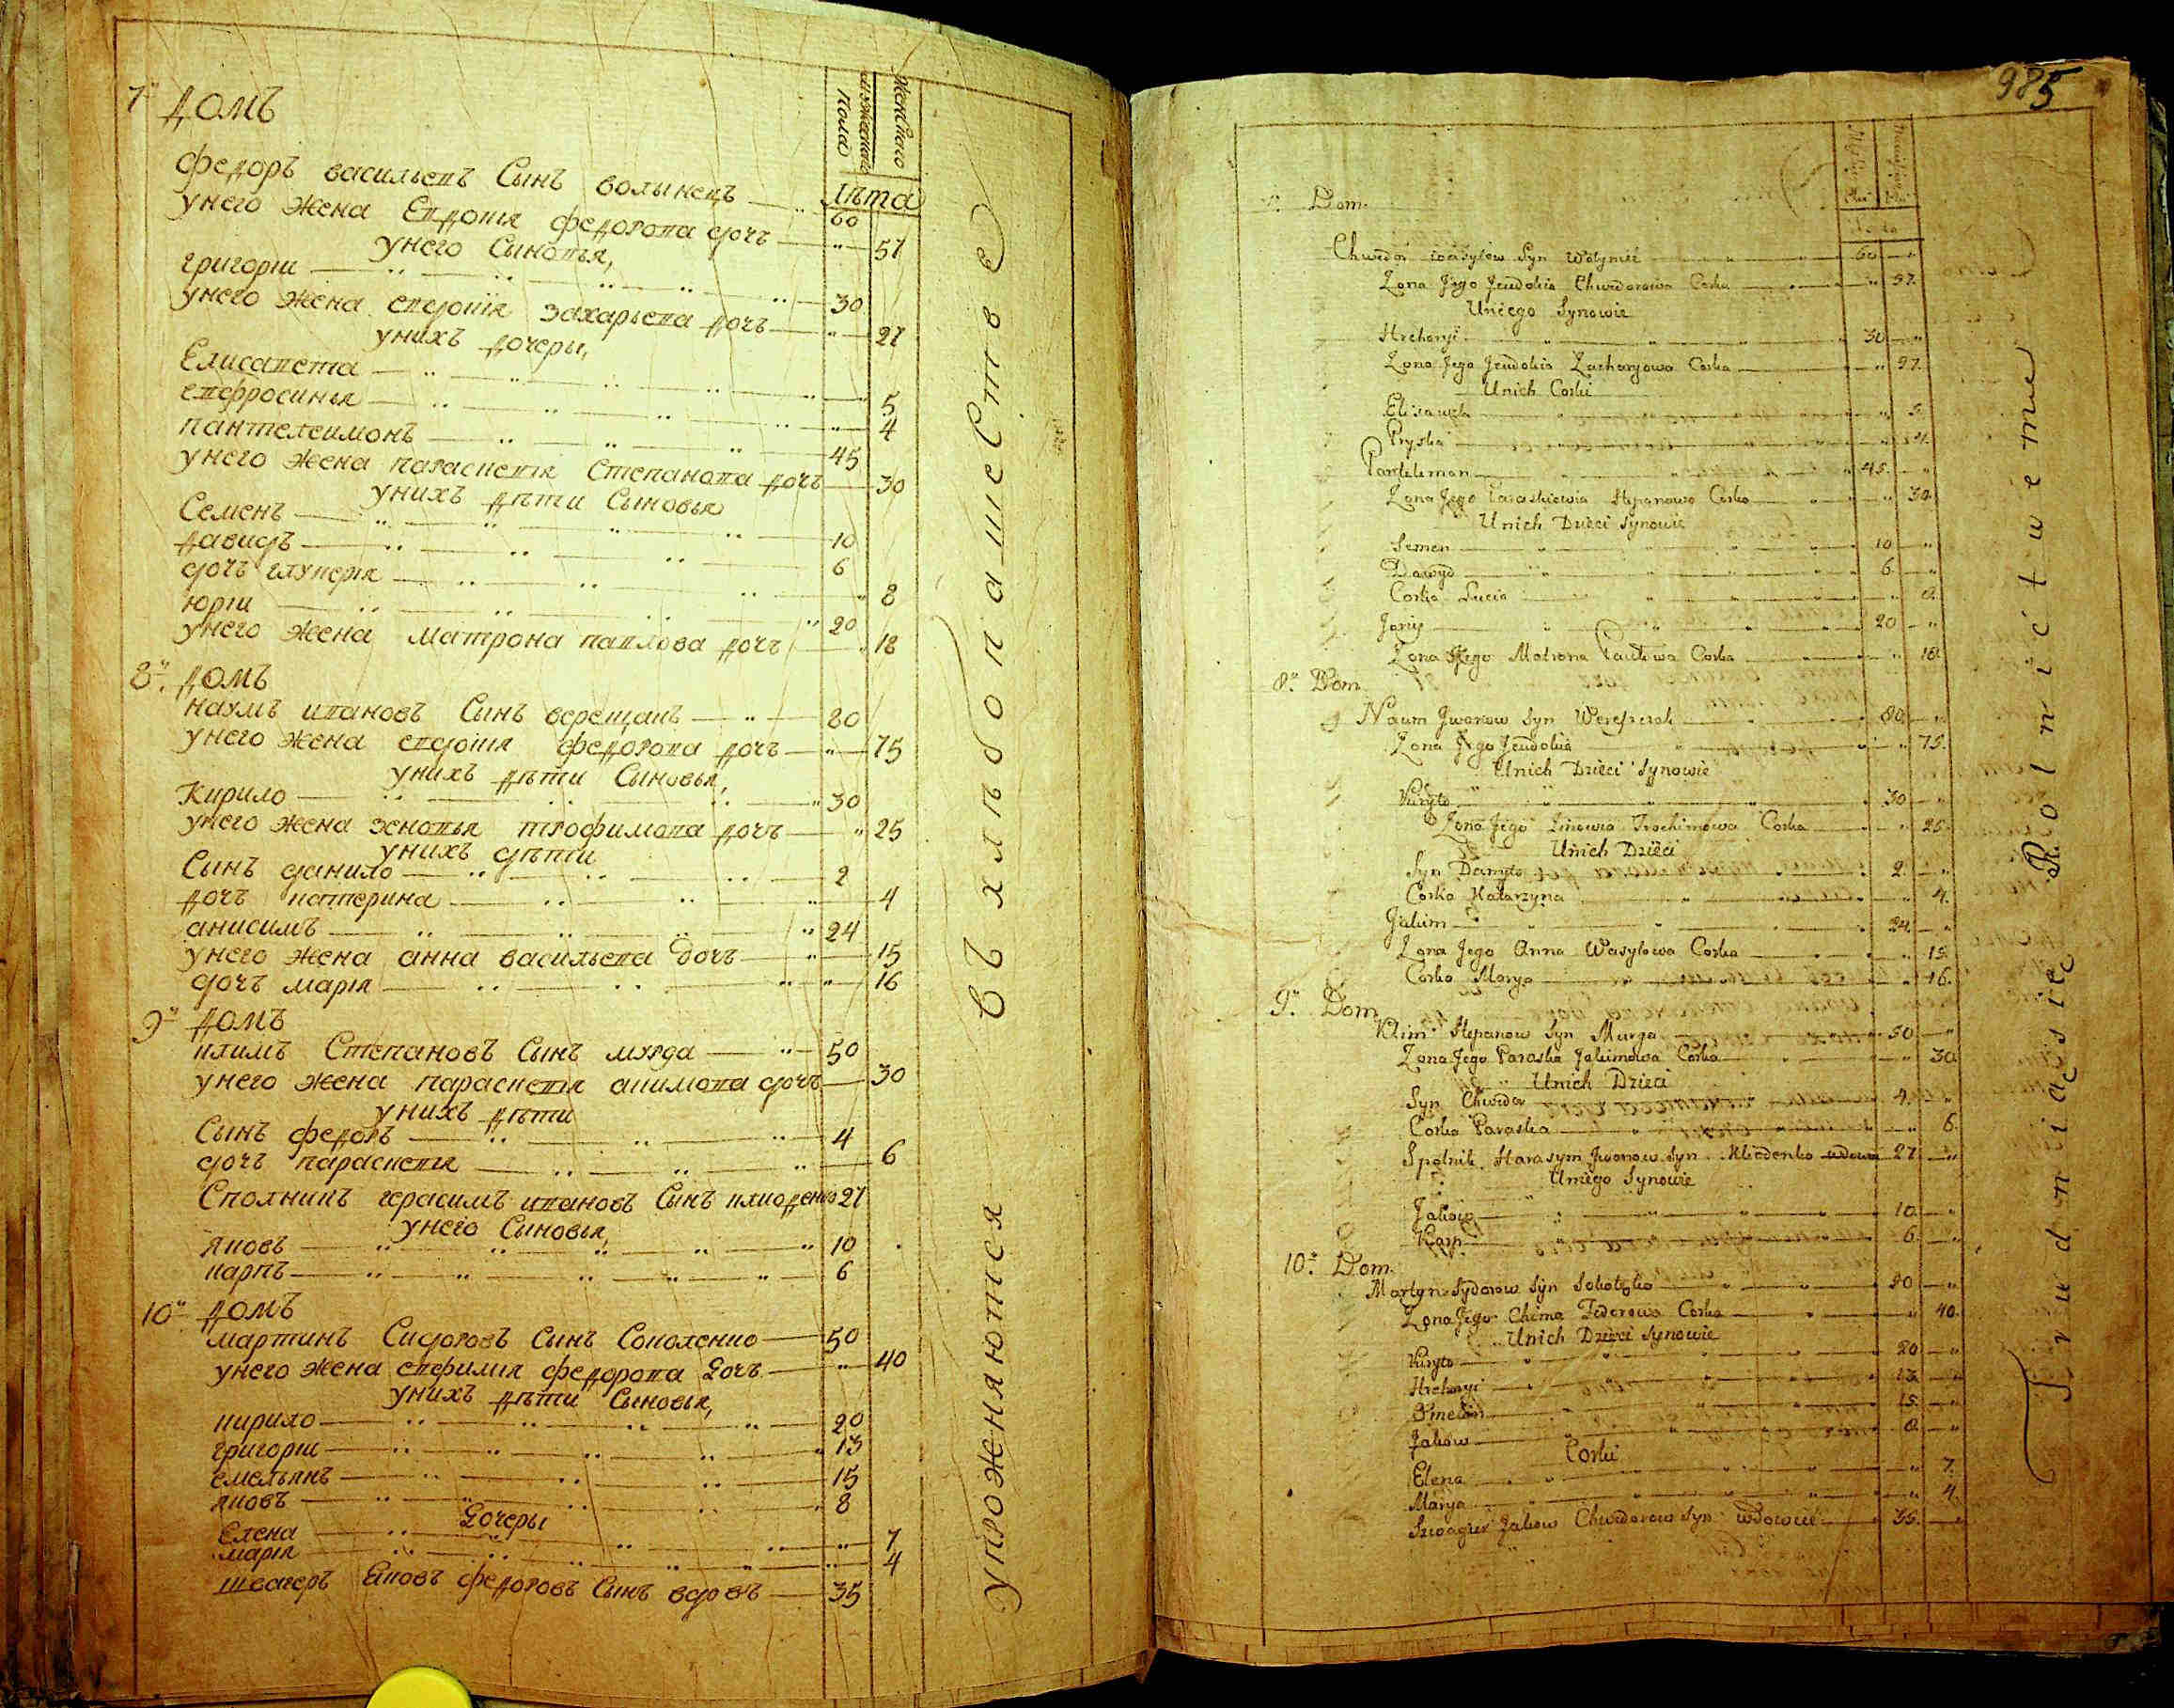 7й домъ
мужеска женскаго
пола
лѣта
федоръ васильевъ Сынъ волынецъ 60
унего жена Евдокія федорова дочь 57
унего Сыновья,
григорій 30
унего жена евдокія захарьева дочъ 27
унихъ дочеры,
Елисавета 5
евфросинья 4
пантелеимонъ 45
унего жена параскевія Степанова дочъ 30
унихъ дѣти Сыновья
Семенъ 10
давидъ 6
дочъ глукерія 8
юрій 20
унего жена матрона павлова дочъ 18
8й домъ
наумъ ивановъ Сынъ верещакъ 80
унего жена евдокія федорова дочъ 75
унихъ дѣти Сыновья,
Кирило 30
унего жена зеновья трофимова дочъ 25
унихъ дѣти
Сынъ данило 2
дочъ катерина 4
анисимъ 24
унего жена анна васильева дочъ 15
дочъ марія 16
9й домъ
климъ Степановъ Сынъ мурга 50
унего жена параскевія акимова дочъ 30
унихъ дѣти
Сынъ федоръ 4
дочъ параскевія 6
Сполникъ герасимъ ивановъ Сынъ клюденко 27
унего Сыновья,
яковъ 10
карпъ 6
10й домъ
мартинъ Сидоровъ Сынъ Соколенко 50
унего жена евфимія федорова дочъ 40
унихъ дѣти Сыновья,
кирило 20
григорій 13
емельянъ 15
яковъ 8
дочеры
Елена 7
марія 4
швагеръ яковъ федоровъ Сынъ вдовъ 35
упрожняются въ хлѣбопашестве
985
7. Dom.
Chwedor wasylew Syn Wołyniec 60
Zona Jego Jeudokia Chwedorowa Corka 57.
Uniego Synowie
Hrehoryi 30
Zona Jego Jeudokia Zacharyowa Corka 27.
Unich Corki
Elizaweta 5.
Pryska 4.
Panteleman 45.
Zona Jego Paraskiewia Stepanowa Corka 30.
Unich Dzieci Synowie
Semen 10
Dawyd 6.
Corka Lucia 8.
Joriy 20
Zona Jego Matrona Pawłowa Corka 18.
8. Dom
Naum Jwanow Syn Wereszczak 80.
Zona Jego Jeudokia 75.
Unich Dzieci Synowie
Kuryło 30
Zona Jego Zinowia Trochimowa Corka 25.
Unich Dzieci
Syn Danyło 2.
Corka Katarzyna 4.
Jakim 24.
Zona Jego Anna Wasylowa Corka 15.
Corka Marya 16.
9. Dom
Klim Stepanow Syn Murga 50
Zona Jego Paraska Jakimowa Corka 30.
Unich Dzieci
Syn Chwedor 4.
Corka Paraska 6.
Spolnik Harasym Jwanow Syn Kliedenko wdowiec 27
Uniego Synowie
Jakow 10.
Karp 6.
10. Dom.
Martyn Sydorow Syn Sokołoko 50
Zona Jego Chima Fedorowa Corka 40.
Unich Dzieci Synowie
Kuryło 20
Hrehoryi 13.
Omelan 15.
Jakow 8.
Corki
Elena 7.
Marya 4.
Szwagier Jakow Chwedorow Syn wdowiec 35.
Trudniące się Rolnictwieme